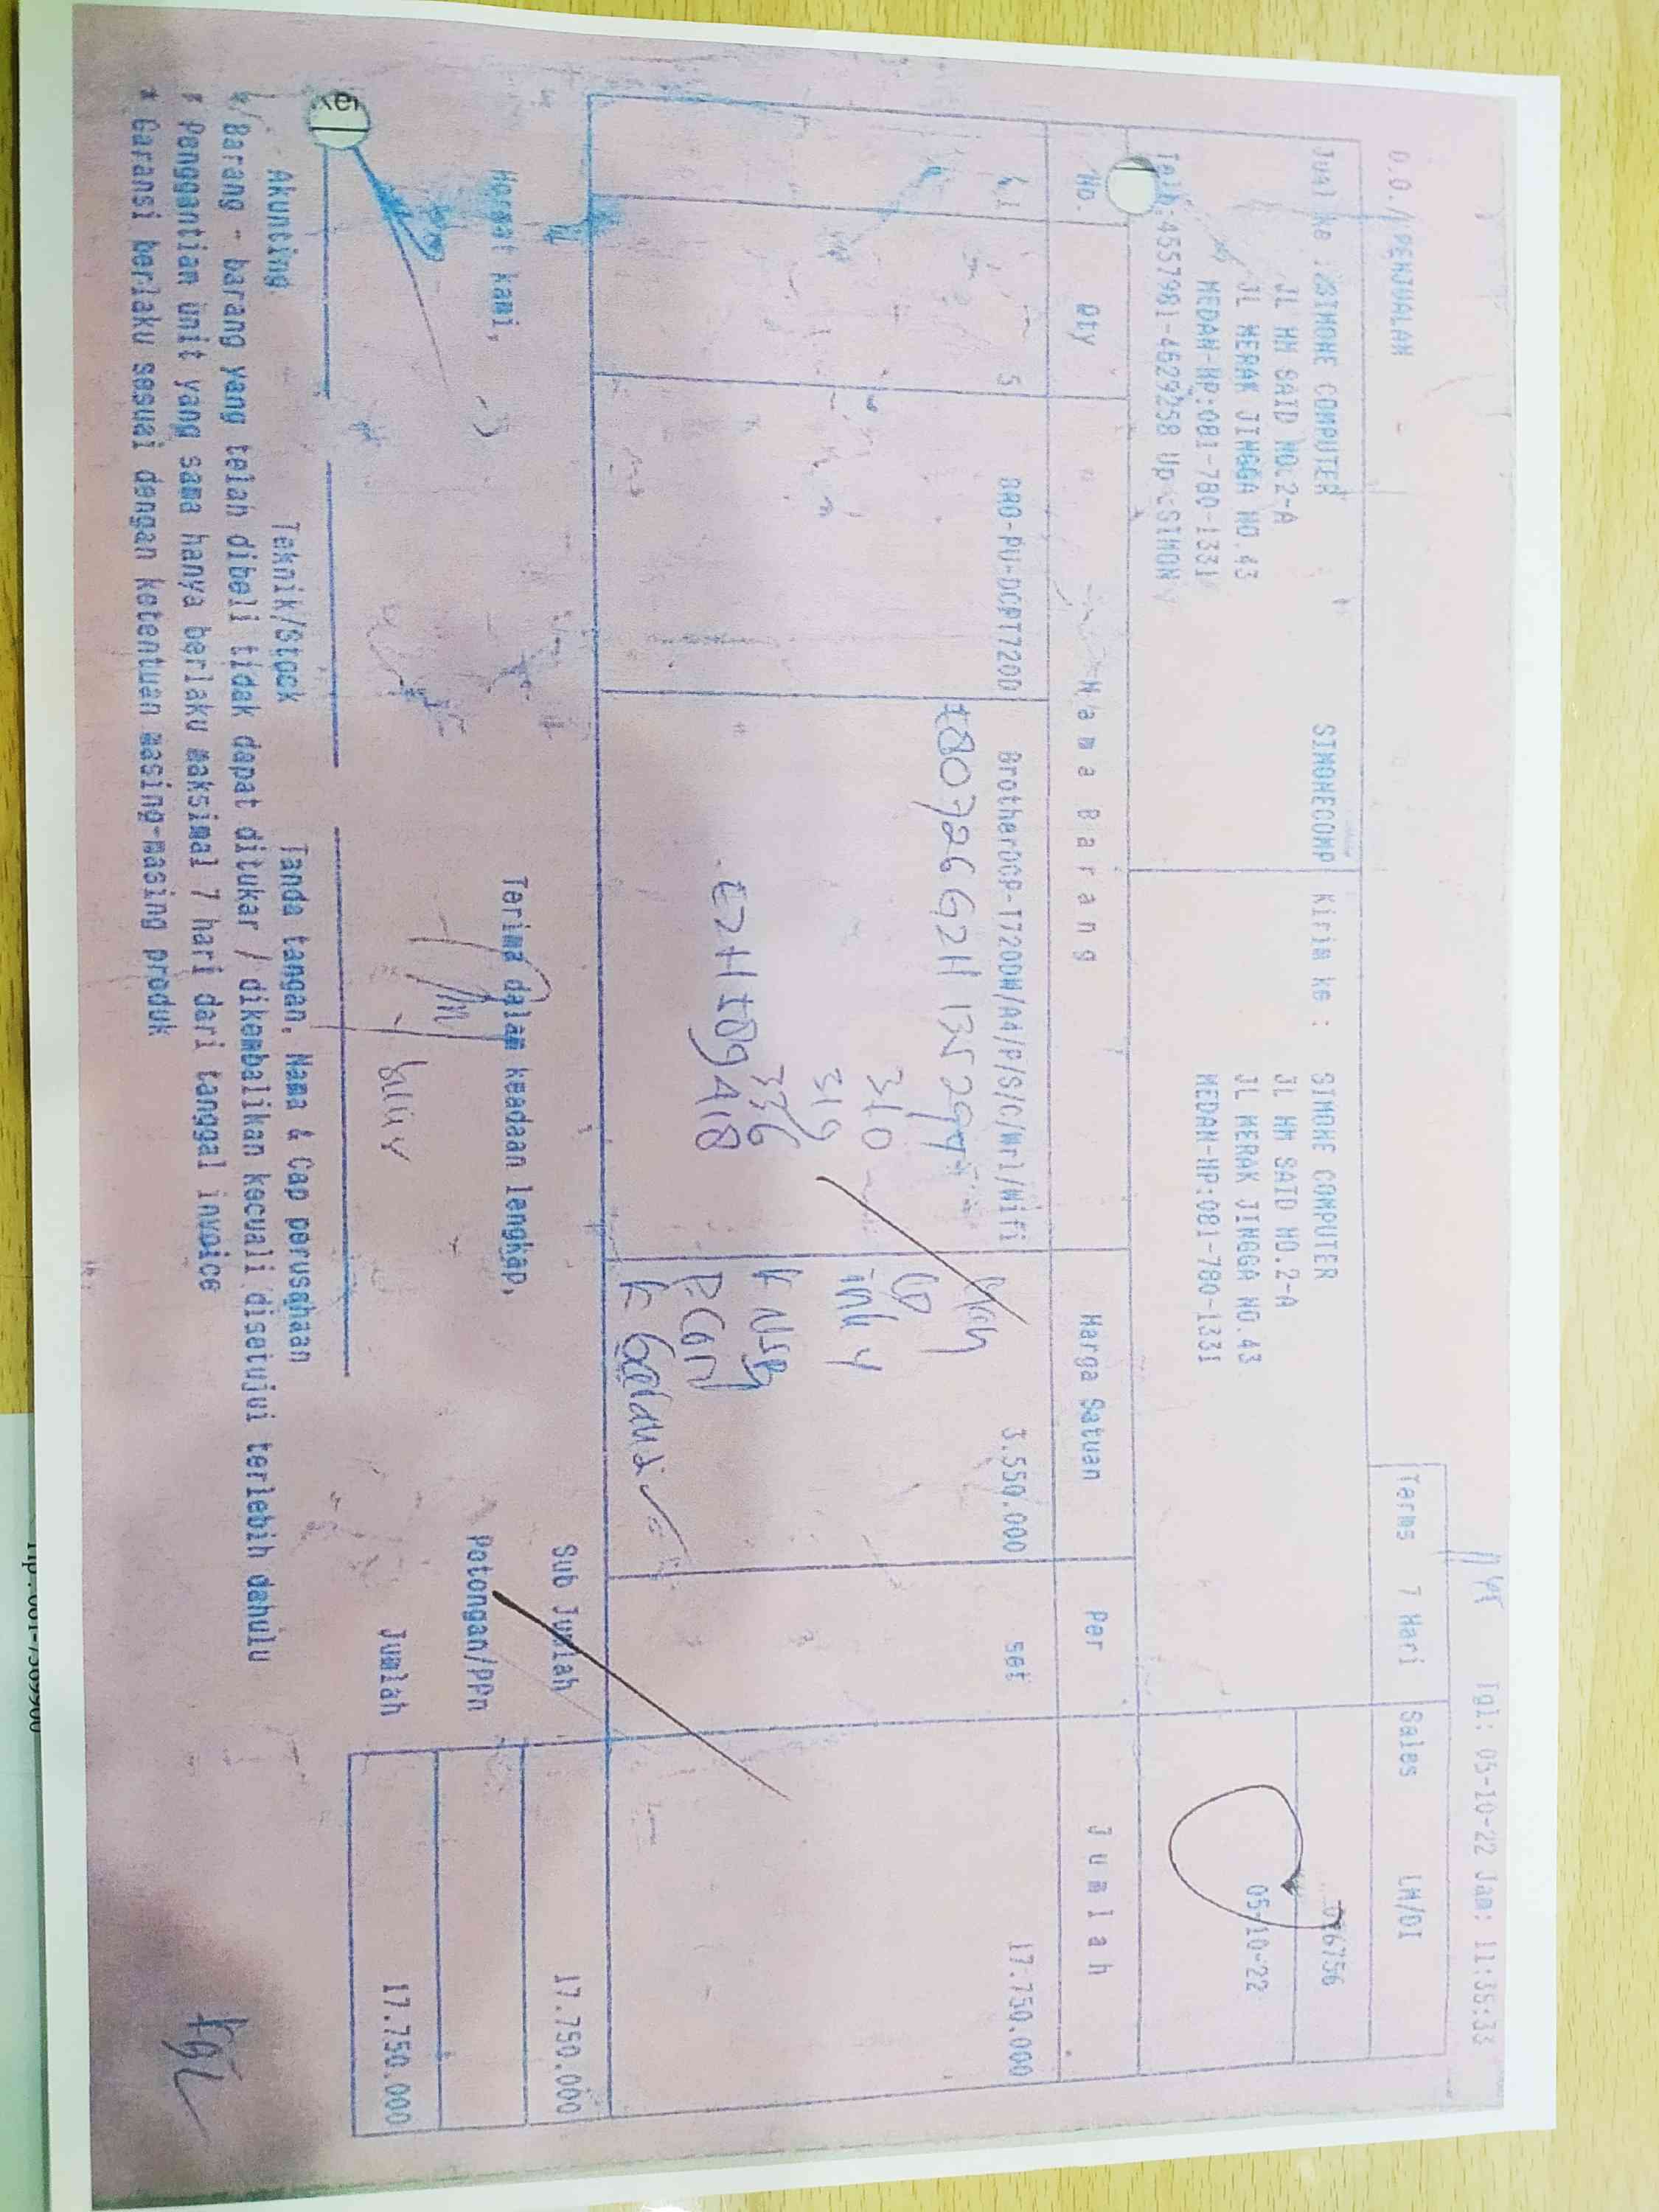 Tgl: 05-10-22 Jam: 11:36:33
D.O./PENJUALAN -
Terms 7 Hari Sales LM/DI
Jual ke : SIMONE COMPUTER SIMONECOMP
JL HM SAID NO.2-A
JL MERAK JINGGA NO.43
MEDAN-HP:081-780-1331
Telp:4557981-4629258 Up:SIMON
Kirim ke : SIMONE COMPUTER
JL HM SAID NO.2-A
JL MERAK JINGGA NO.43
MEDAN-HP:081-780-1331
05-10-22
No. Qty Nama Barang Harga Satuan Per Jumlah
1 5 BRO-PU-DCPT720D BrotherDCP-T720DW/A4/P/S/C/Wrl/Wifi 3.550.000 set 17.750.000
310
319
336
CD
Sub Jumlah 17.750.000
Hormat kami, Terima dalam keadaan lengkap,
Potongan/PPn
Jumlah 17.750.000
Akunting Teknik/Stock Tanda tangan, Nama & Cap perusahaan
* Barang - barang yang telah dibeli tidak dapat ditukar / dikembalikan kecuali disetujui terlebih dahulu
* Penggantian unit yang sama hanya berlaku maksimal 7 hari dari tanggal invoice
* Garansi berlaku sesuai dengan ketentuan masing-masing produk